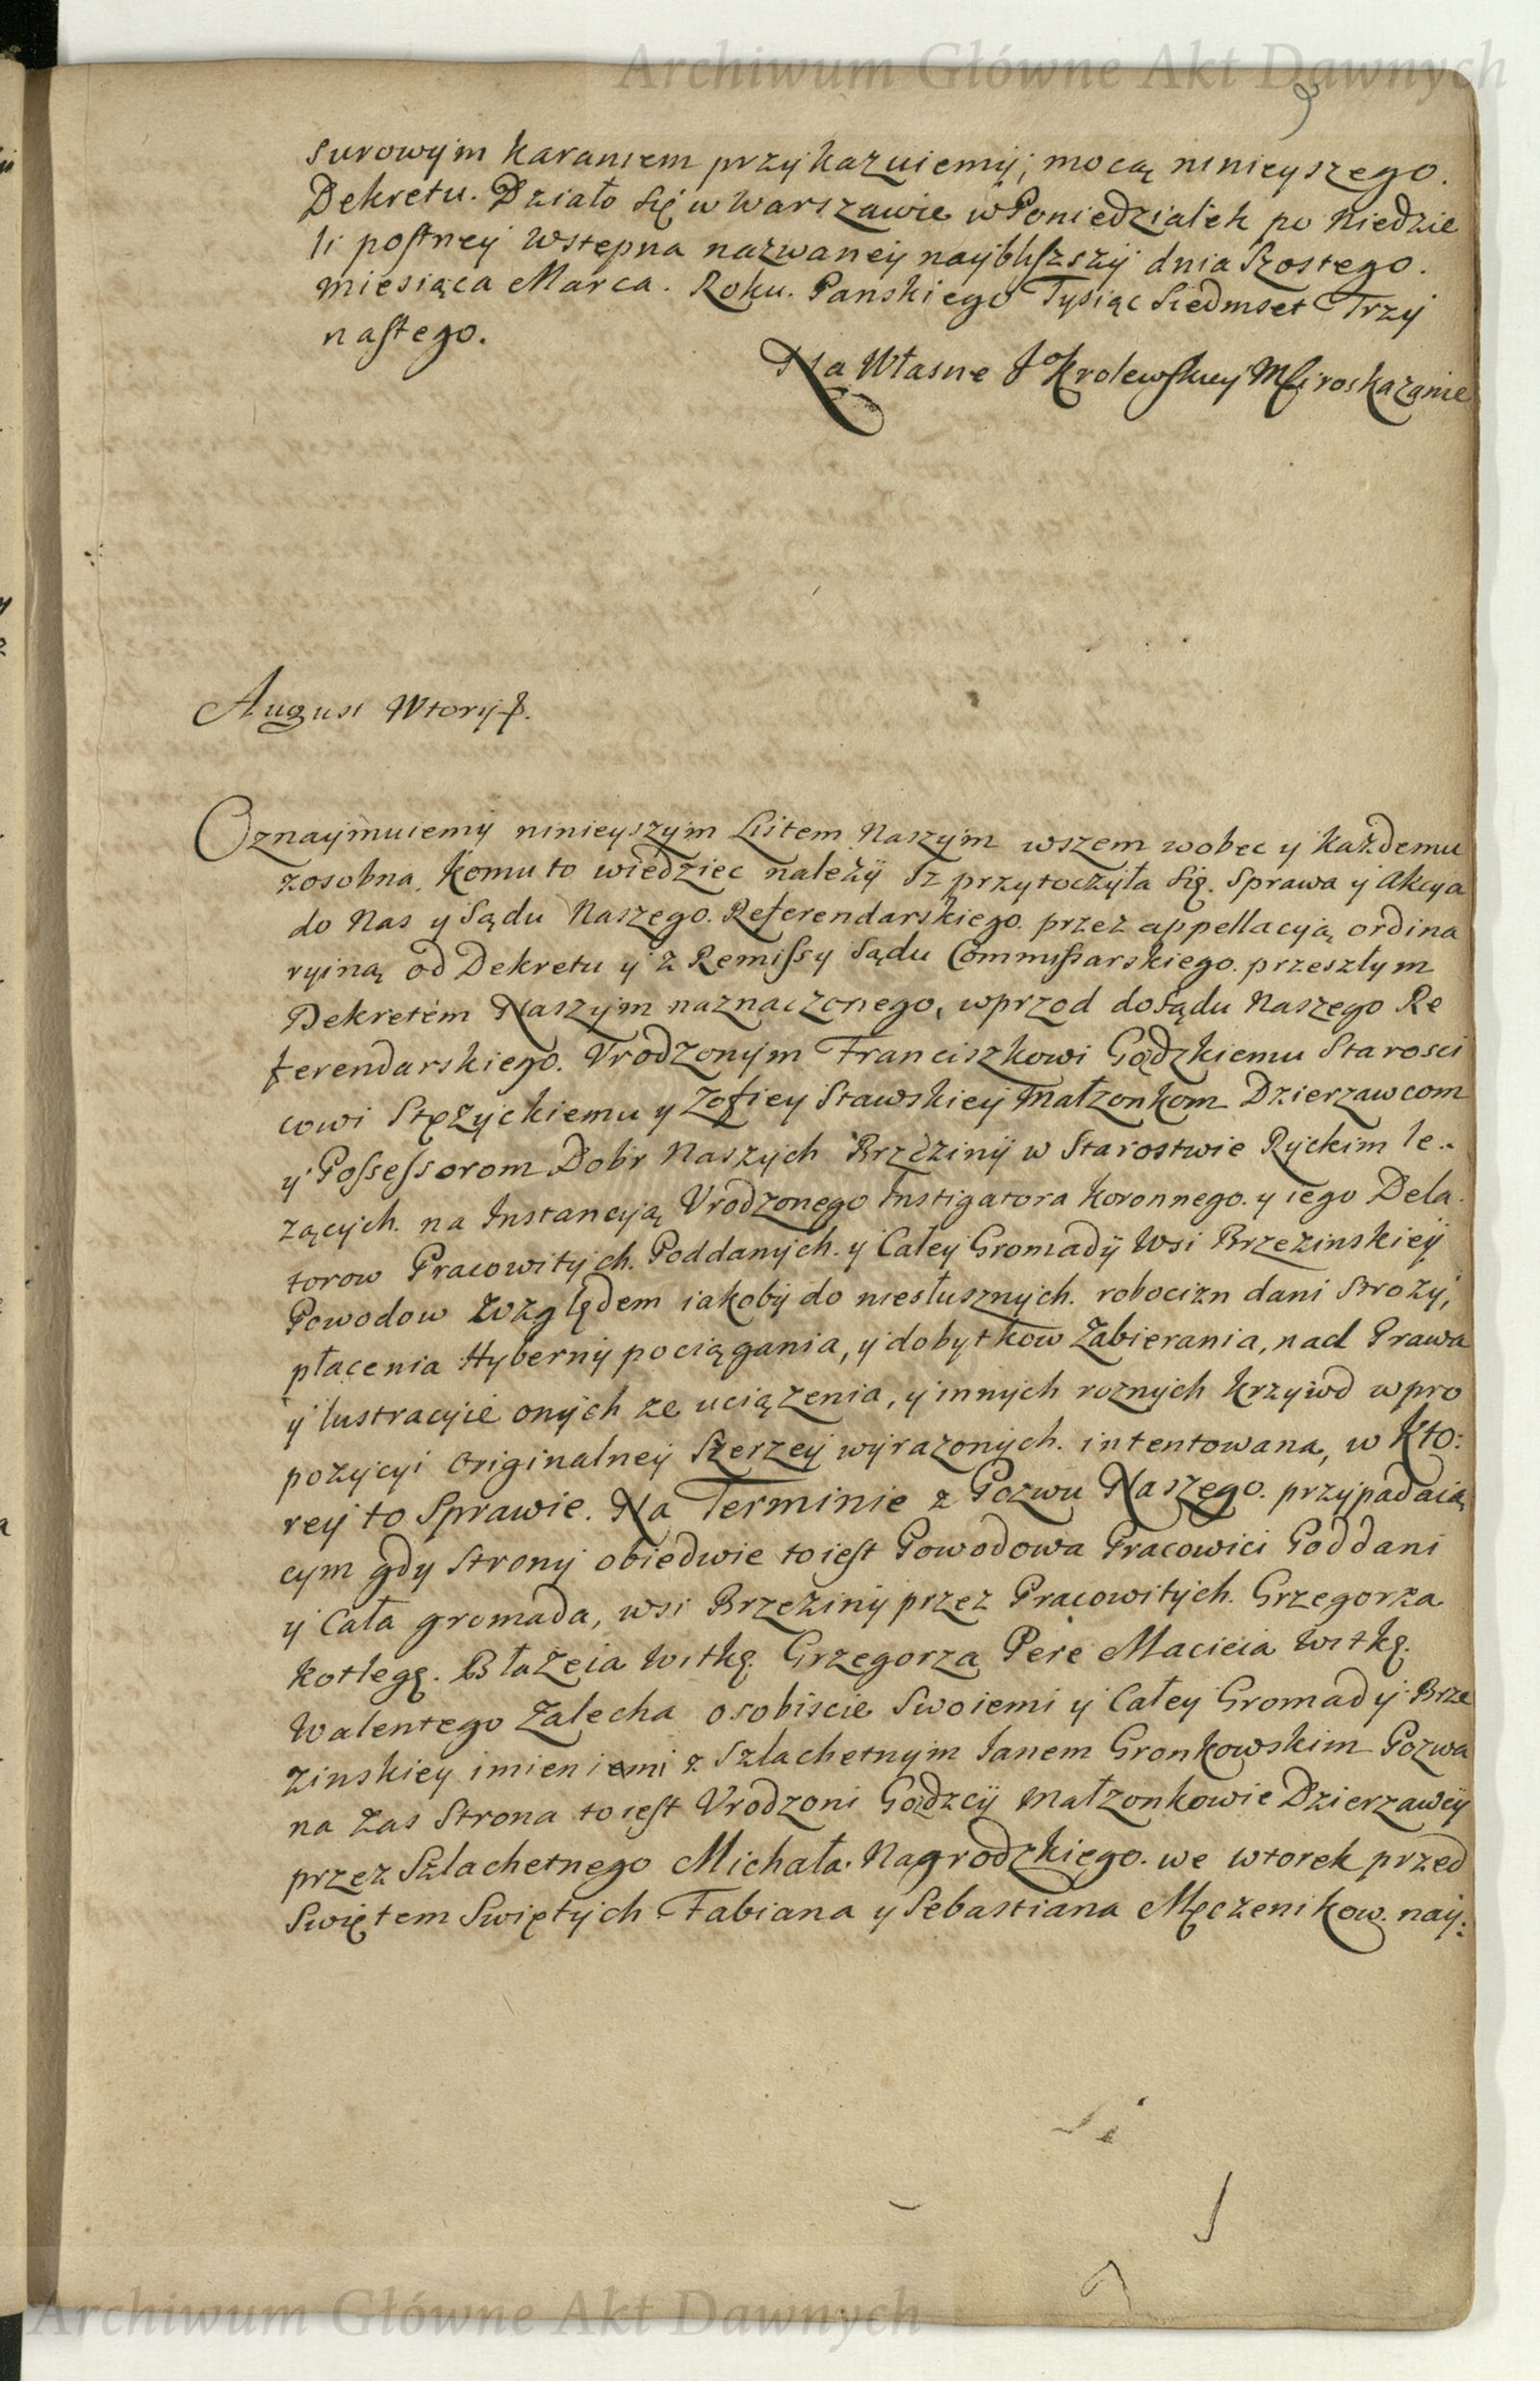 Archiwum Główne Akt Dawnych
9
surowym karaniem przykazuiemy, mocą ninieyszego.
Dekretu. Działo się w Warszawie w Poniedziałek po Niedzie
li postney Wstępna nazwaney naybliszszy dnia Szostego.
miesiąca Marca. Roku. Panskiego Tysiąc Siedmset Trzy
nastego.
Na Własne J Krolewskiey Msci roskazanie
August Wtory
Oznaymuiemy ninieyszym Listem Naszym wszem wobec y każdemu
zosobna, komu to wiedziec należy Iż przytoczyła się. Sprawa y Akcya
do Nas y Sądu Naszego. Referendarskiego. przez appellacyią ordina
ryiną od Dekretu y z Remissy Sądu Commissarskiego. przeszłym
Dekretem Naszym naznaczonego, wprzod do Sądu Naszego Re
ferendarskiego. Vrodzonym Franciszkowi Godzkiemu Starosci
cowi Stężyckiemu y Zofiey Stawskiey Małzonkom Dzierzawcom
y Possessorom Dobr Naszych Brzeziny w Starostwie Ryckim le
zących. na Instancyią Vrodzonego Instigatora Koronnego. y iego Dela
torow Pracowitych. Poddanych. y Całey Gromady Wsi Brzezinskiey
Powodow Względem iakoby do niesłusznych. robocizn dani Strozy,
płacenia Hyberny pociągania, y dobytkow Zabierania, nad Prawa
y lustracyie onych ze uciązenia, y innych roznych krzywd w pro
pozycyi originalney Szerzey wyrazonych. intentowana, w Kto:
rey to Sprawie. Na Terminie z Pozwu Naszego. przypadaią
cym gdy Strony obiedwie to iest Powodowa Pracowici Poddani
y Cała gromada, wsi Brzeziny przez Pracowitych. Grzegorza
Kotlegę. Błażeia Witkę. Grzegorza Pere Macieia Witkę.
Walentego Zalecha osobiscie Swoiemi y Całey Gromady Brze
zinskiey imieniemi z Szlachetnym Ianem Gronkowskim Pozwa
na zas Strona to iest Vrodzoni Godzcy Małzonkowie Dzierzawcy
przez Szlachetnego Michała Nagrodzkiego. we wtorek przed
Swiętem Swiętych Fabiana y Sebastiana Męczenikow. nay:
Archiwum Główne Akt Dawnych